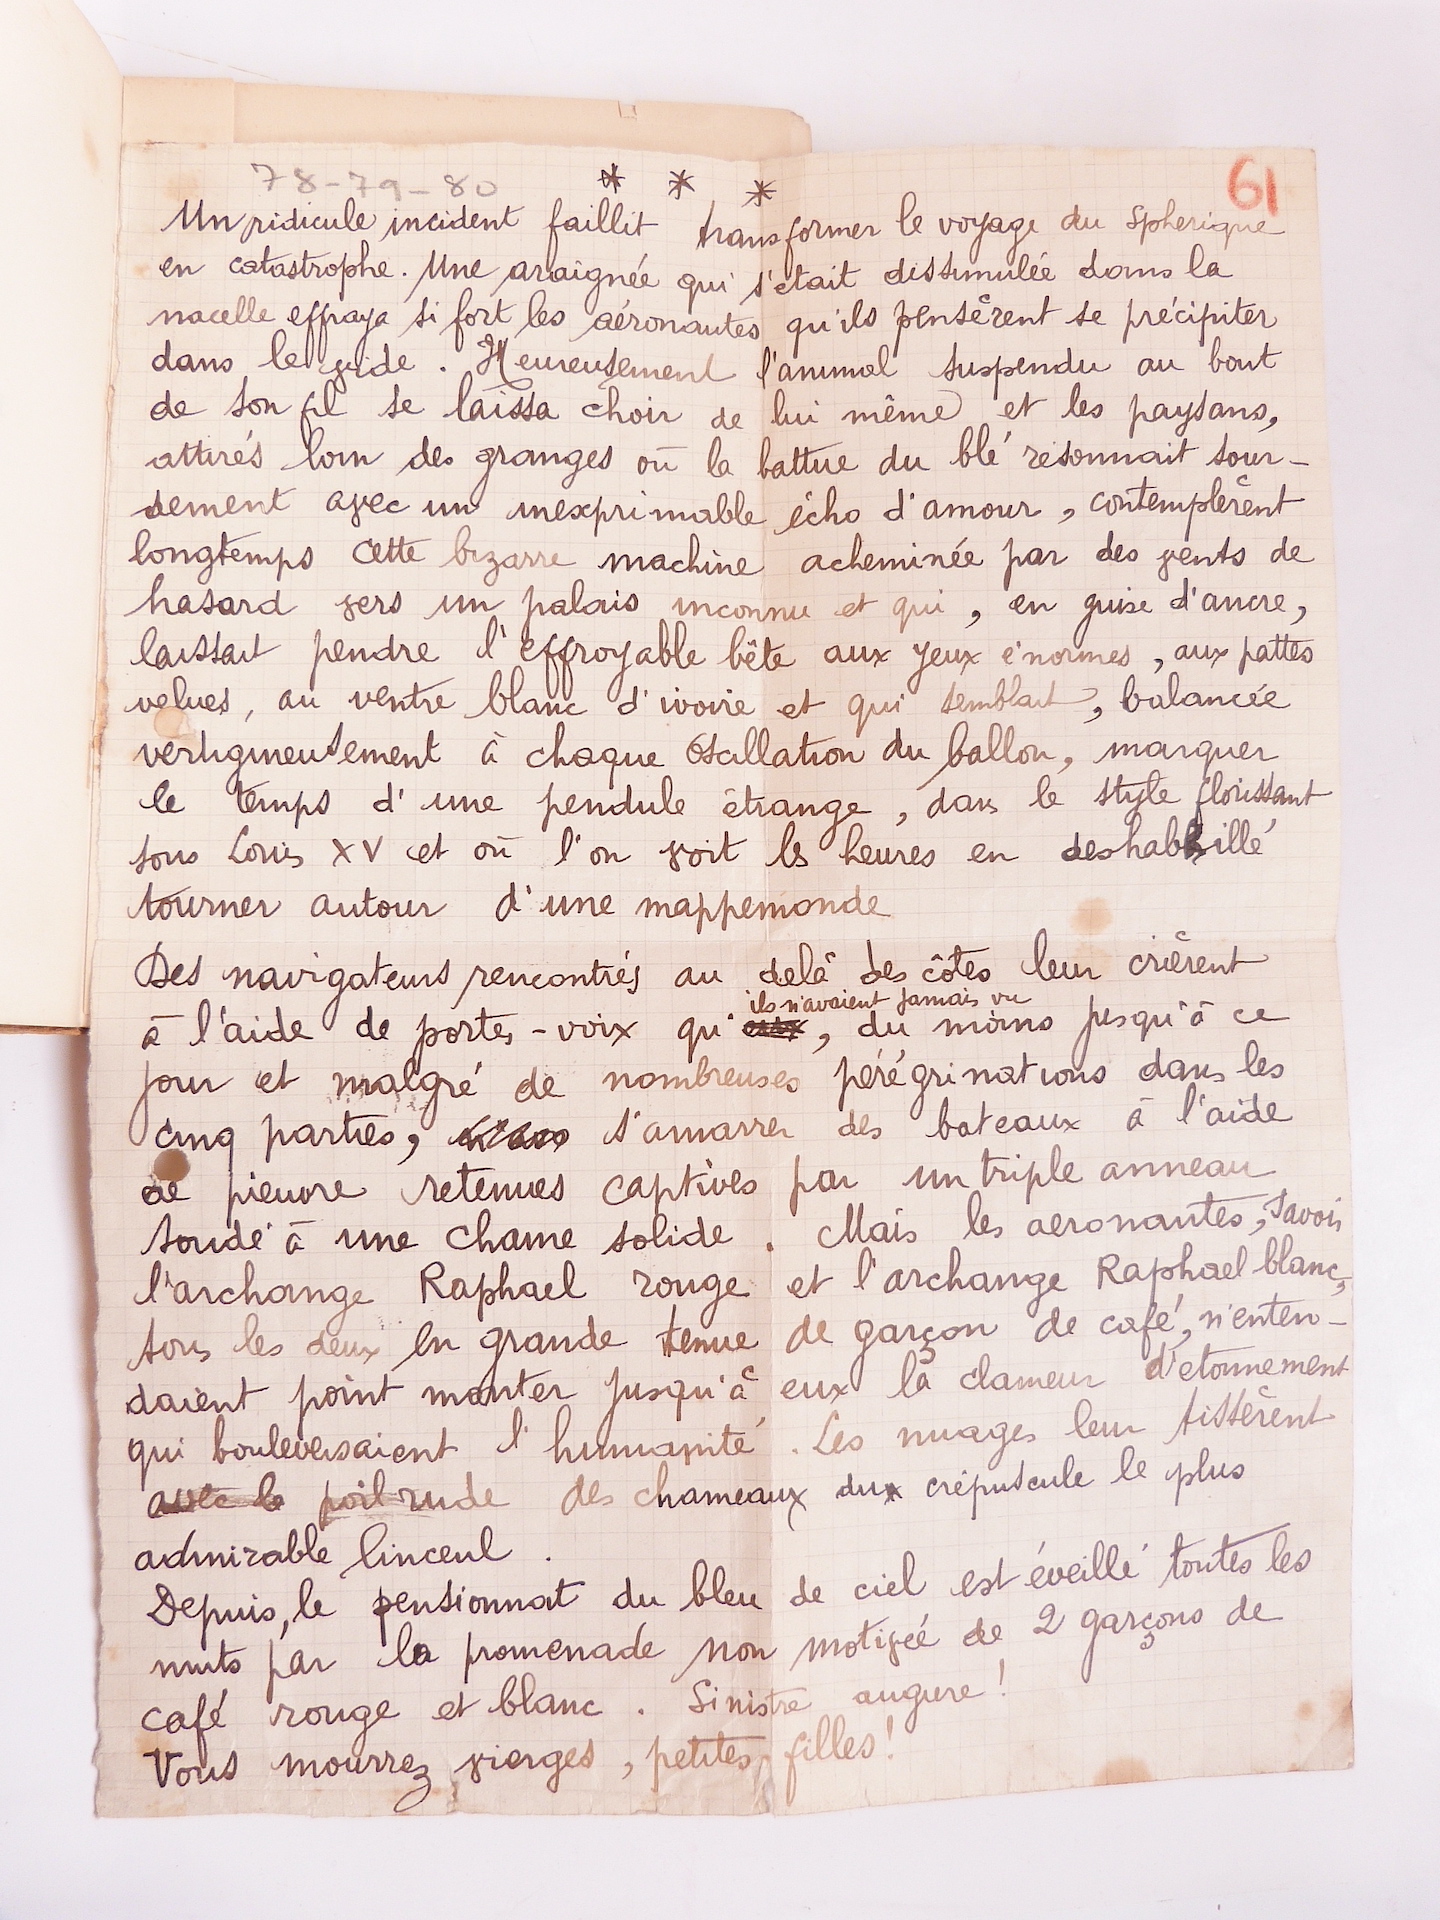 78-79-80 * * * 61
Un ridicule incident faillit transformer le voyage du Spherique
en catastrophe. Une araignée qui s'était dissimulée dans la
nacelle effraya si fort les aéronautes qu'ils pensèrent se précipiter
dans le vide. Heureusement l'animal suspendu au bout
de son fil se laissa choir de lui même et les paysans,
attirés loin des granges où la battue du blé résonnait sour-
dement avec un inexprimable écho d'amour, contemplèrent
longtemps cette bizarre machine acheminée par des vents de
hasard vers un palais inconnu et qui, en guise d'ancre,
laissait pendre l'effroyable bête aux yeux énormes, aux pattes
velues, au ventre blanc d'ivoire et qui semblait, balancée
vertigineusement à chaque oscillation du ballon, marquer
le temps d'une pendule étrange, dans le style florissant
sous Louis XV et où l'on voit les heures en deshabillé
tourner autour d'une mappemonde
Des navigateurs rencontrés au delà des côtes leur crièrent
ils n'avaient jamais vu
à l'aide de portes-voix qu' , du moins jusqu'à ce
jour et malgré de nombreuses pérégrinations dans les
cinq parties, s'amarrer des bateaux à l'aide
de pieuvre retenues captives par un triple anneau
soudé à une chaine solide. Mais les aeronautes, savoir
l'archange Raphael rouge et l'archange Raphael blanc,
tous les deux en grande tenue de garçon de café, n'enten-
daient point monter jusqu'à eux la clameur d'étonnement
qui bouleversaient l'humanité. Les nuages leur tissèrent
avec le poil rude des chameaux du crépuscule le plus
admirable linceul.
Depuis, le pensionnat du bleu de ciel est éveillé toutes les
nuits par la promenade non motivée de 2 garçons de
café rouge et blanc. Sinistre augure!
Vous mourrez vierges, petites filles!